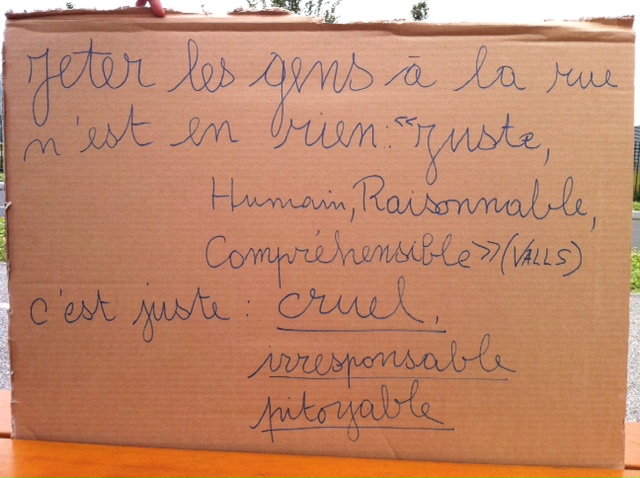 Jeter les gens à la rue
n'est en rien: "Juste,
Humain, Raisonnable,
Compréhensible» (VALLS)
c'est juste: cruel,
irresponsable
pitoyable